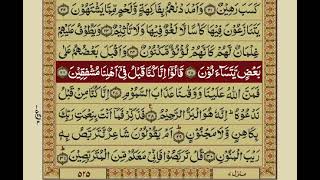 كَسَبَ رَهِيْنٌ ﴿۲۱﴾ وَاَمْدَدْنٰهُمْ بِفَاكِهَةٍ وَّلَحْمٍ مِّمَّا يَشْتَهُوْنَ ﴿۲۲﴾
يَتَنَازَعُوْنَ فِيْهَا كَاْسًا لَّا لَغْوٌ فِيْهَا وَلَا تَاْثِيْمٌ ﴿۲۳﴾ وَيَطُوْفُ عَلَيْهِمْ
غِلْمَانٌ لَّهُمْ كَاَنَّهُمْ لُؤْلُؤٌ مَّكْنُوْنٌ ﴿۲۴﴾ وَاَقْبَلَ بَعْضُهُمْ عَلٰى
بَعْضٍ يَّتَسَآءَلُوْنَ ﴿۲۵﴾ قَالُوْٓا اِنَّا كُنَّا قَبْلُ فِيْٓ اَهْلِنَا مُشْفِقِيْنَ ﴿۲۶﴾
فَمَنَّ اللّٰهُ عَلَيْنَا وَوَقٰىنَا عَذَابَ السَّمُوْمِ ﴿۲۷﴾ اِنَّا كُنَّا مِنْ قَبْلُ
نَدْعُوْهُ ؕ اِنَّهٗ هُوَ الْبَرُّ الرَّحِيْمُ ﴿۲۸﴾ فَذَكِّرْ فَمَآ اَنْتَ بِنِعْمَتِ رَبِّكَ
بِكَاهِنٍ وَّلَا مَجْنُوْنٍ ﴿۲۹﴾ اَمْ يَقُوْلُوْنَ شَاعِرٌ نَّتَرَبَّصُ بِهٖ
رَيْبَ الْمَنُوْنِ ﴿۳۰﴾ قُلْ تَرَبَّصُوْا فَاِنِّيْ مَعَكُمْ مِّنَ الْمُتَرَبِّصِيْنَ ﴿۳۱﴾
منزل ۷
۵۲۵